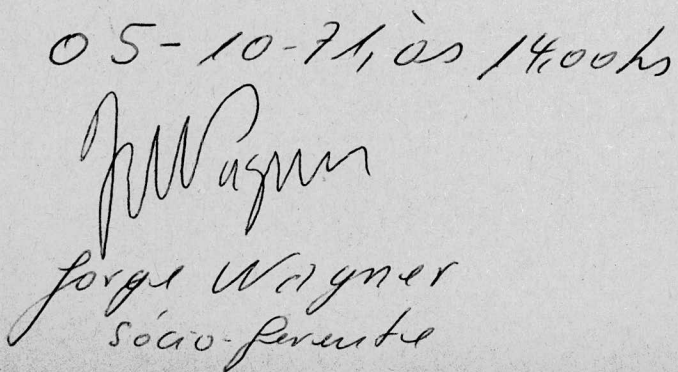 05-10-71, às 14,00hs
JWagner
Jorge Wagner
Sócio-Gerente